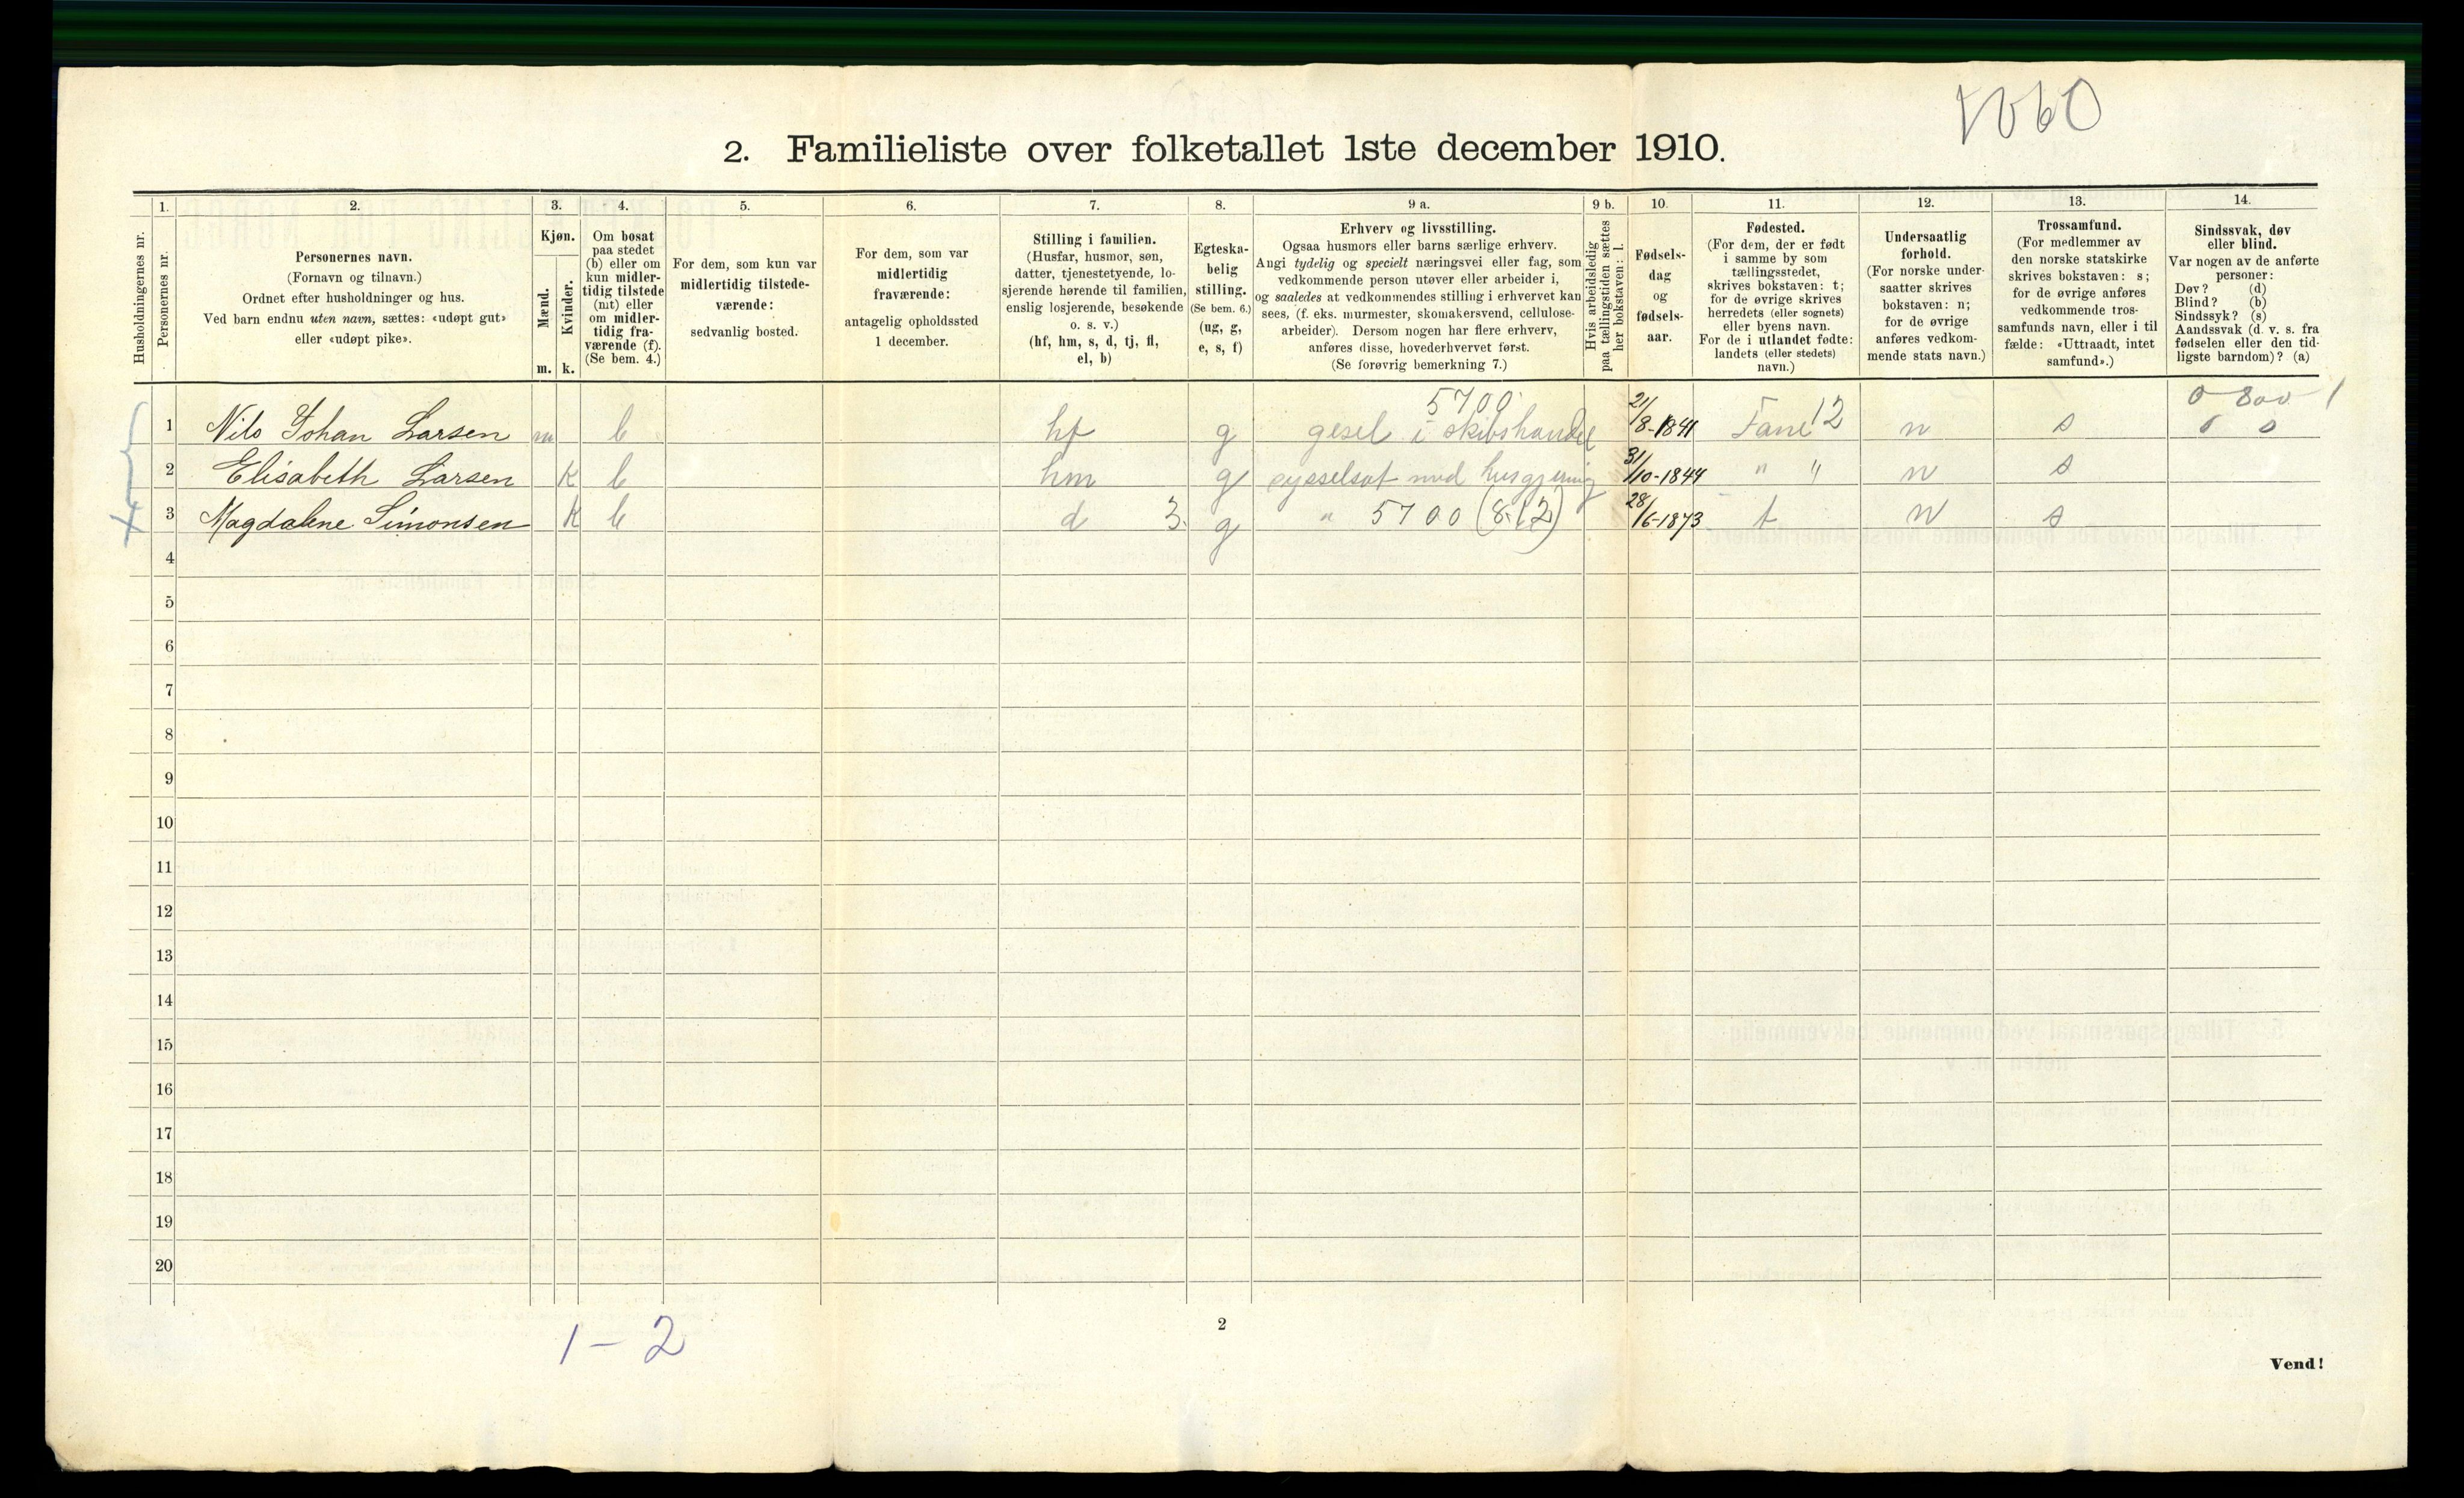 1060
2. Familieliste over folketallet 1ste december 1910.
1. 2. 3. 4. 5. 6. 7. 8. 9 a. 9 b. 10. 11. 12. 13. 14.
Husholdningernes nr.
Personernes nr.
Personernes navn.
(Fornavn og tilnavn.)
Ordnet efter husholdninger og hus.
Ved barn endnu uten navn, sættes: «udøpt gut»
eller «udøpt pike».
Kjøn.
Mænd.
Kvinder.
m. k.
Om bosat
paa stedet
(b) eller om
kun midler-
tidig tilstede
(mt) eller
om midler-
tidig fra-
værende (f).
(Se bem. 4.)
For dem, som kun var
midlertidig tilstede-
værende:
sedvanlig bosted.
For dem, som var
midlertidig
fraværende:
antagelig opholdssted
1 december.
Stilling i familien.
(Husfar, husmor, søn,
datter, tjenestetyende, lo-
sjerende hørende til familien,
enslig losjerende, besøkende
o. s. v.)
(hf, hm, s, d, tj, fl,
el, b)
Egteska-
belig
stilling.
(Se bem. 6.)
(ug, g,
e, s, f)
Erhverv og livsstilling.
Ogsaa husmors eller barns særlige erhverv.
Angi tydelig og specielt næringsvei eller fag, som
vedkommende person utøver eller arbeider i,
og saaledes at vedkommendes stilling i erhvervet kan
sees, (f. eks. murmester, skomakersvend, cellulose-
arbeider). Dersom nogen har flere erhverv,
anføres disse, hovederhvervet først.
(Se forøvrig bemerkning 7.)
Hvis arbeidsledig
paa tællingstiden sættes
her bokstaven: l.
Fødsels-
dag
og
fødsels-
aar.
Fødested.
(For dem, der er født
i samme by som
tællingsstedet,
skrives bokstaven: t;
for de øvrige skrives
herredets (eller sognets)
eller byens navn.
For de i utlandet fødte:
landets (eller stedets)
navn.)
Undersaatlig
forhold.
(For norske under-
saatter skrives
bokstaven: n;
for de øvrige
anføres vedkom-
mende stats navn.)
Trossamfund.
(For medlemmer av
den norske statskirke
skrives bokstaven: s;
for de øvrige anføres
vedkommende tros-
samfunds navn, eller i til
fælde: «Uttraadt, intet
samfund».)
Sindssvak, døv
eller blind.
Var nogen av de anførte
personer:
Døv? (d)
Blind? (b)
Sindssyk? (s)
Aandssvak (d. v. s. fra
fødselen eller den tid-
ligste barndom)? (a)
5700 0-800 1
1 Nils Johan Larsen m b hf g i skibshandel 21/8-1841 Fane 12 n s
2 Elisabeth Larsen k b hm g sysselsat med husgjerning 31/10-1844 " " n s
3 Magdalene Simonsen k b d 3. g " 5700 (8.12) 28/6-1873 t n s
4
5
6
7
8
9
10
11
12
13
14
15
16
17
18
19
20
1-2
2
Vend!